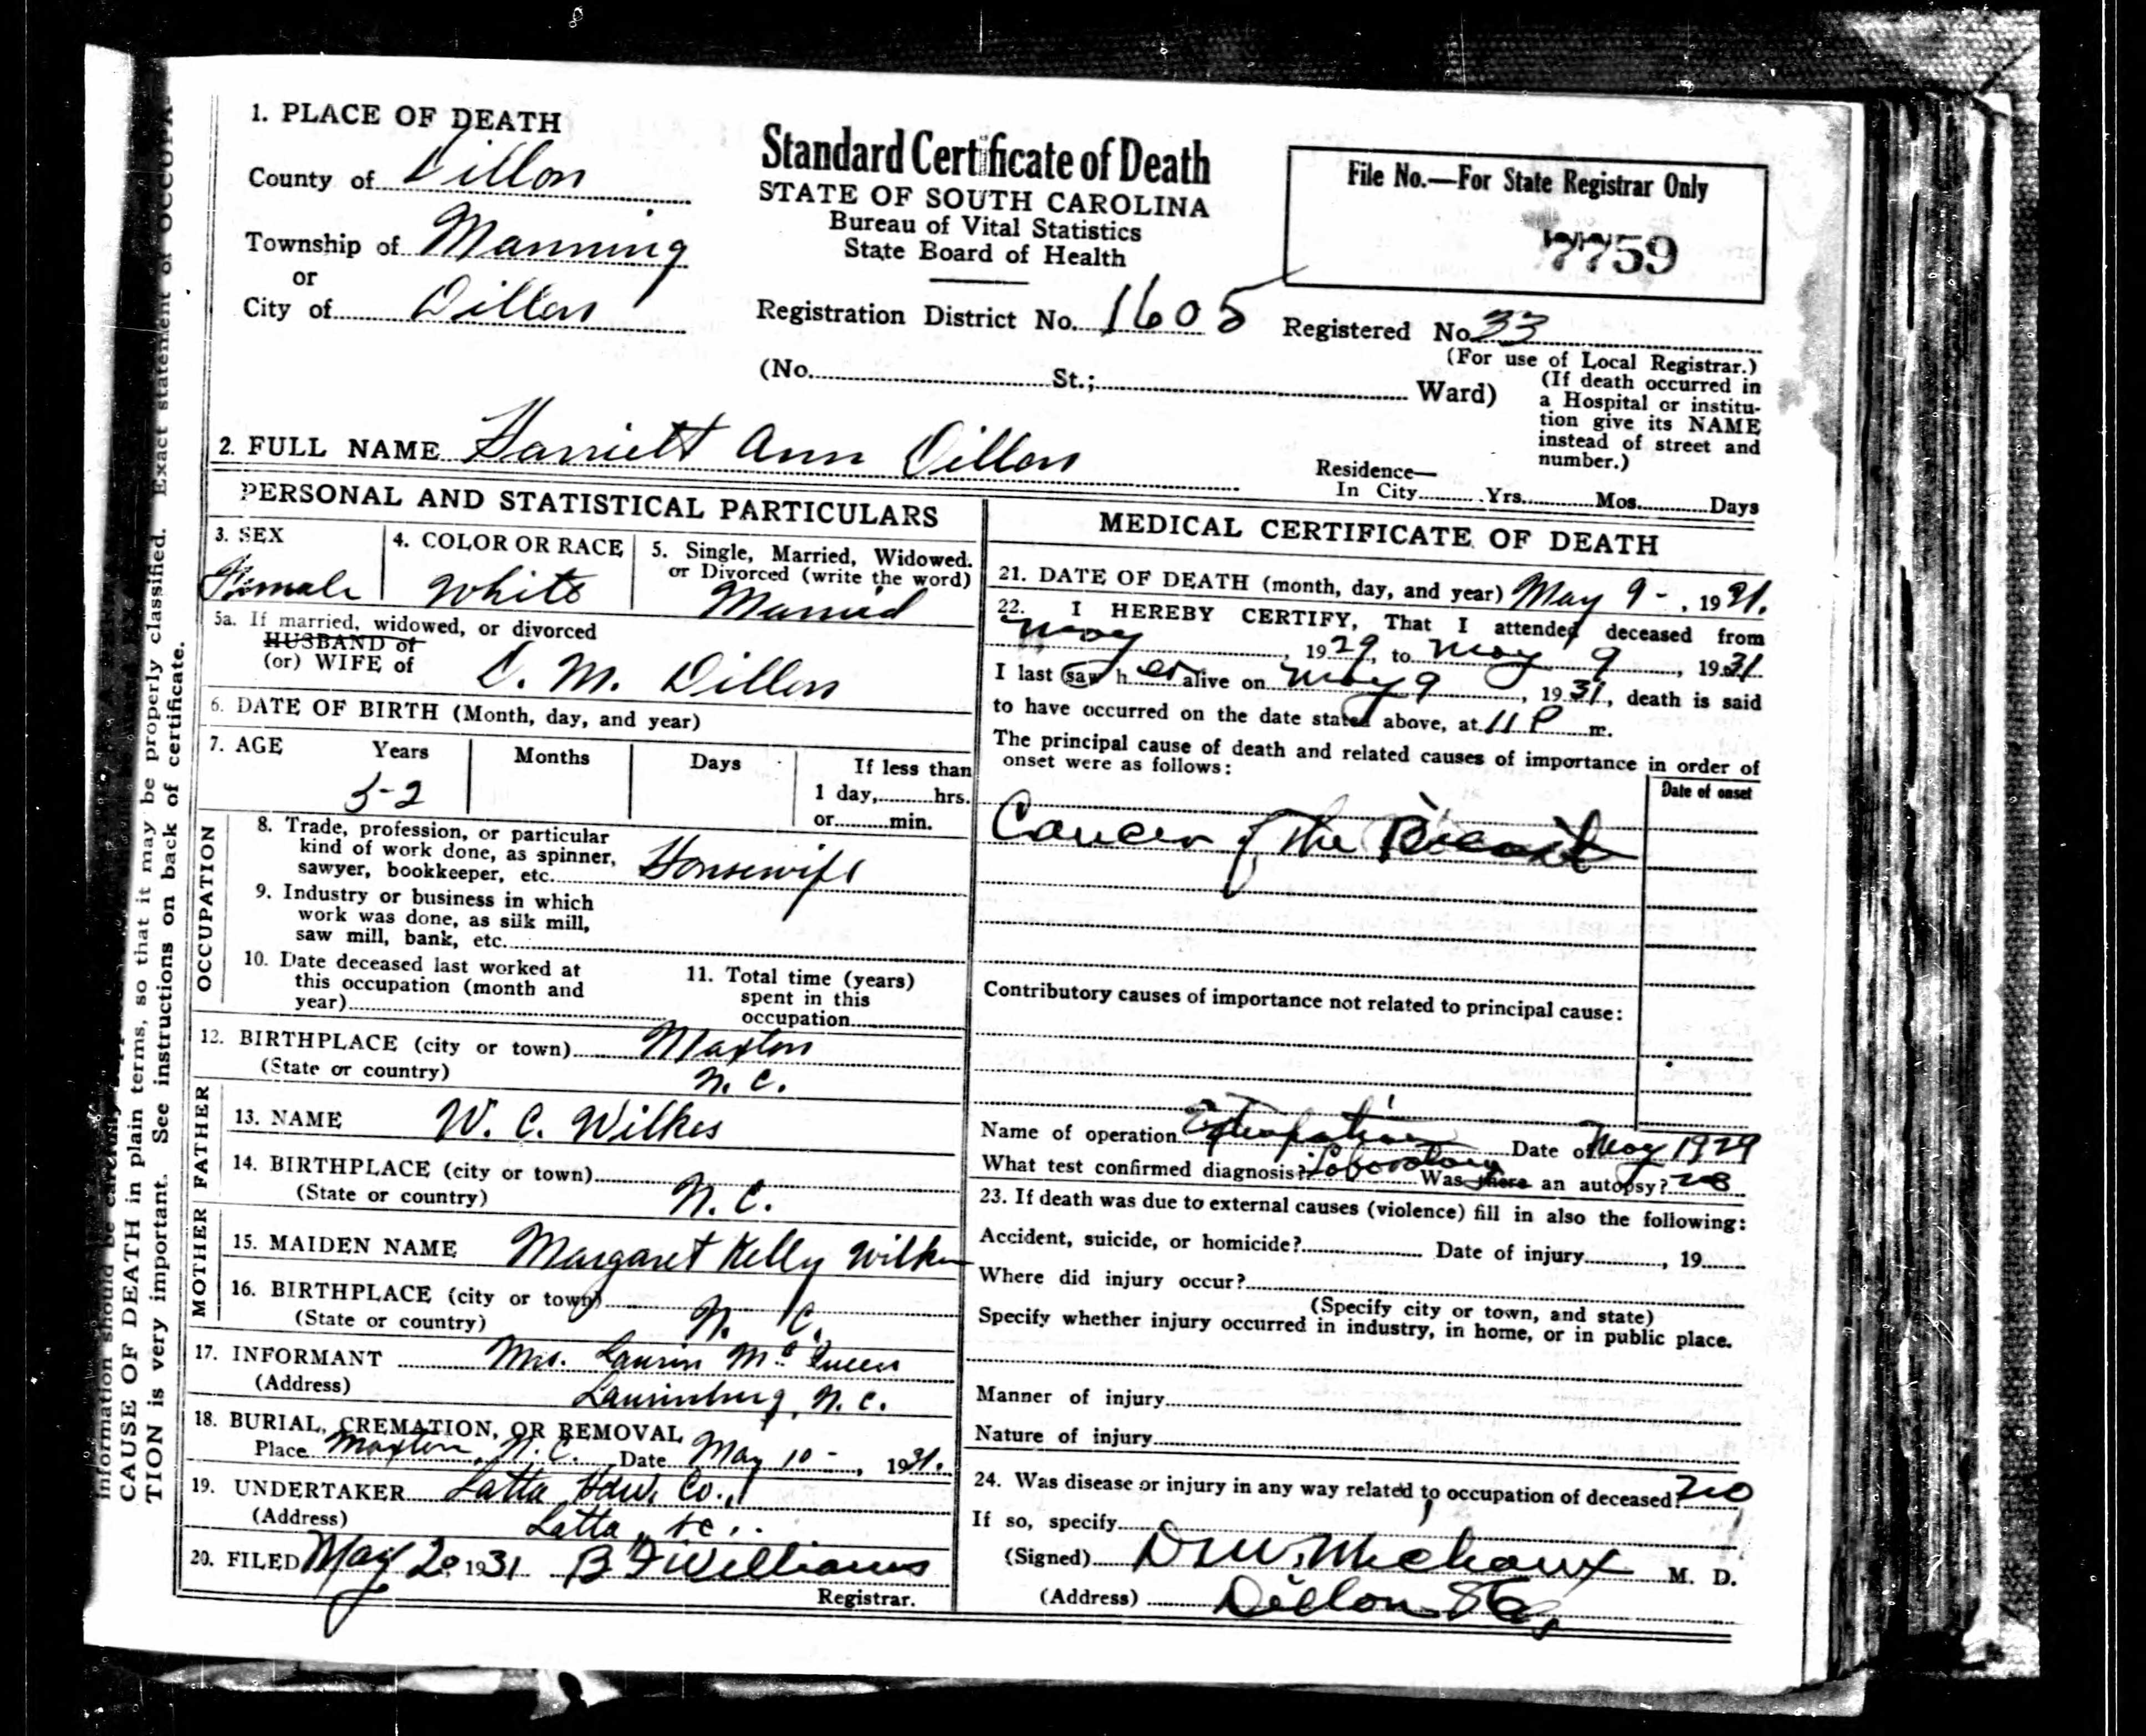 1. PLACE OF DEATH
County of Dillon
Township of Manning
or
City of Dillon
Standard Certificate of Death
STATE OF SOUTH CAROLINA
Bureau of Vital Statistics
State Board of Health
File No.—For State Registrar Only
7759
Registration District No. 1605 Registered No. 33
(For use of Local Registrar.)
(No. St.; Ward)
(If death occurred in
a Hospital or institu-
tion give its NAME
instead of street and
number.)
2. FULL NAME Harriett Ann Dillon
Residence—
In City Yrs. Mos. Days
PERSONAL AND STATISTICAL PARTICULARS
3. SEX
Female
4. COLOR OR RACE
White
5. Single, Married, Widowed.
or Divorced (write the word)
Married
5a. If married, widowed, or divorced
HUSBAND of
(or) WIFE of
M. Dillon
6. DATE OF BIRTH (Month, day, and year)
7. AGE Years Months Days If less than
52
1 day, hrs.
or min.
OCCUPATION
8. Trade, profession, or particular
kind of work done, as spinner,
sawyer, bookkeeper, etc. Housewife
9. Industry or business in which
work was done, as silk mill,
saw mill, bank, etc.
10. Date deceased last worked at
this occupation (month and
year)
11. Total time (years)
spent in this
occupation
12. BIRTHPLACE (city or town) Maxton
(State or country) N. C.
FATHER
13. NAME W. C. Wilkes
14. BIRTHPLACE (city or town)
(State or country) N. C.
MOTHER
15. MAIDEN NAME Margaret Kelly Wilkes
16. BIRTHPLACE (city or town)
(State or country) N. C.
17. INFORMANT Mrs. Laurin McQueen
(Address) Laurinburg, N. C.
18. BURIAL, CREMATION, OR REMOVAL
Place Maxton, N. C. Date May 10-, 1931.
19. UNDERTAKER Latta Hdw. Co.,
(Address) Latta, S.C.
20. FILED May 20 1931 B F Williams
Registrar.
MEDICAL CERTIFICATE OF DEATH
21. DATE OF DEATH (month, day, and year) May 9-, 1931.
22. I HEREBY CERTIFY, That I attended deceased from
May, 1929, to May 9, 1931.
I last saw her alive on May 9, 1931, death is said
to have occurred on the date stated above, at 11 P m.
The principal cause of death and related causes of importance in order of
onset were as follows:
Date of onset
Cancer of the Breast
Contributory causes of importance not related to principal cause:
Name of operation Date of May 1929
What test confirmed diagnosis? Laboratory Was there an autopsy? no
23. If death was due to external causes (violence) fill in also the following:
Accident, suicide, or homicide? Date of injury, 19
Where did injury occur?
(Specify city or town, and state)
Specify whether injury occurred in industry, in home, or in public place.
Manner of injury
Nature of injury
24. Was disease or injury in any way related to occupation of deceased? no
If so, specify
(Signed) Michaux M. D.
(Address) Dillon S.C.
Exact statement of OCCUPA-
CAUSE OF DEATH in plain terms, so that it may be properly classified.
TION is very important. See instructions on back of certificate.
information should be